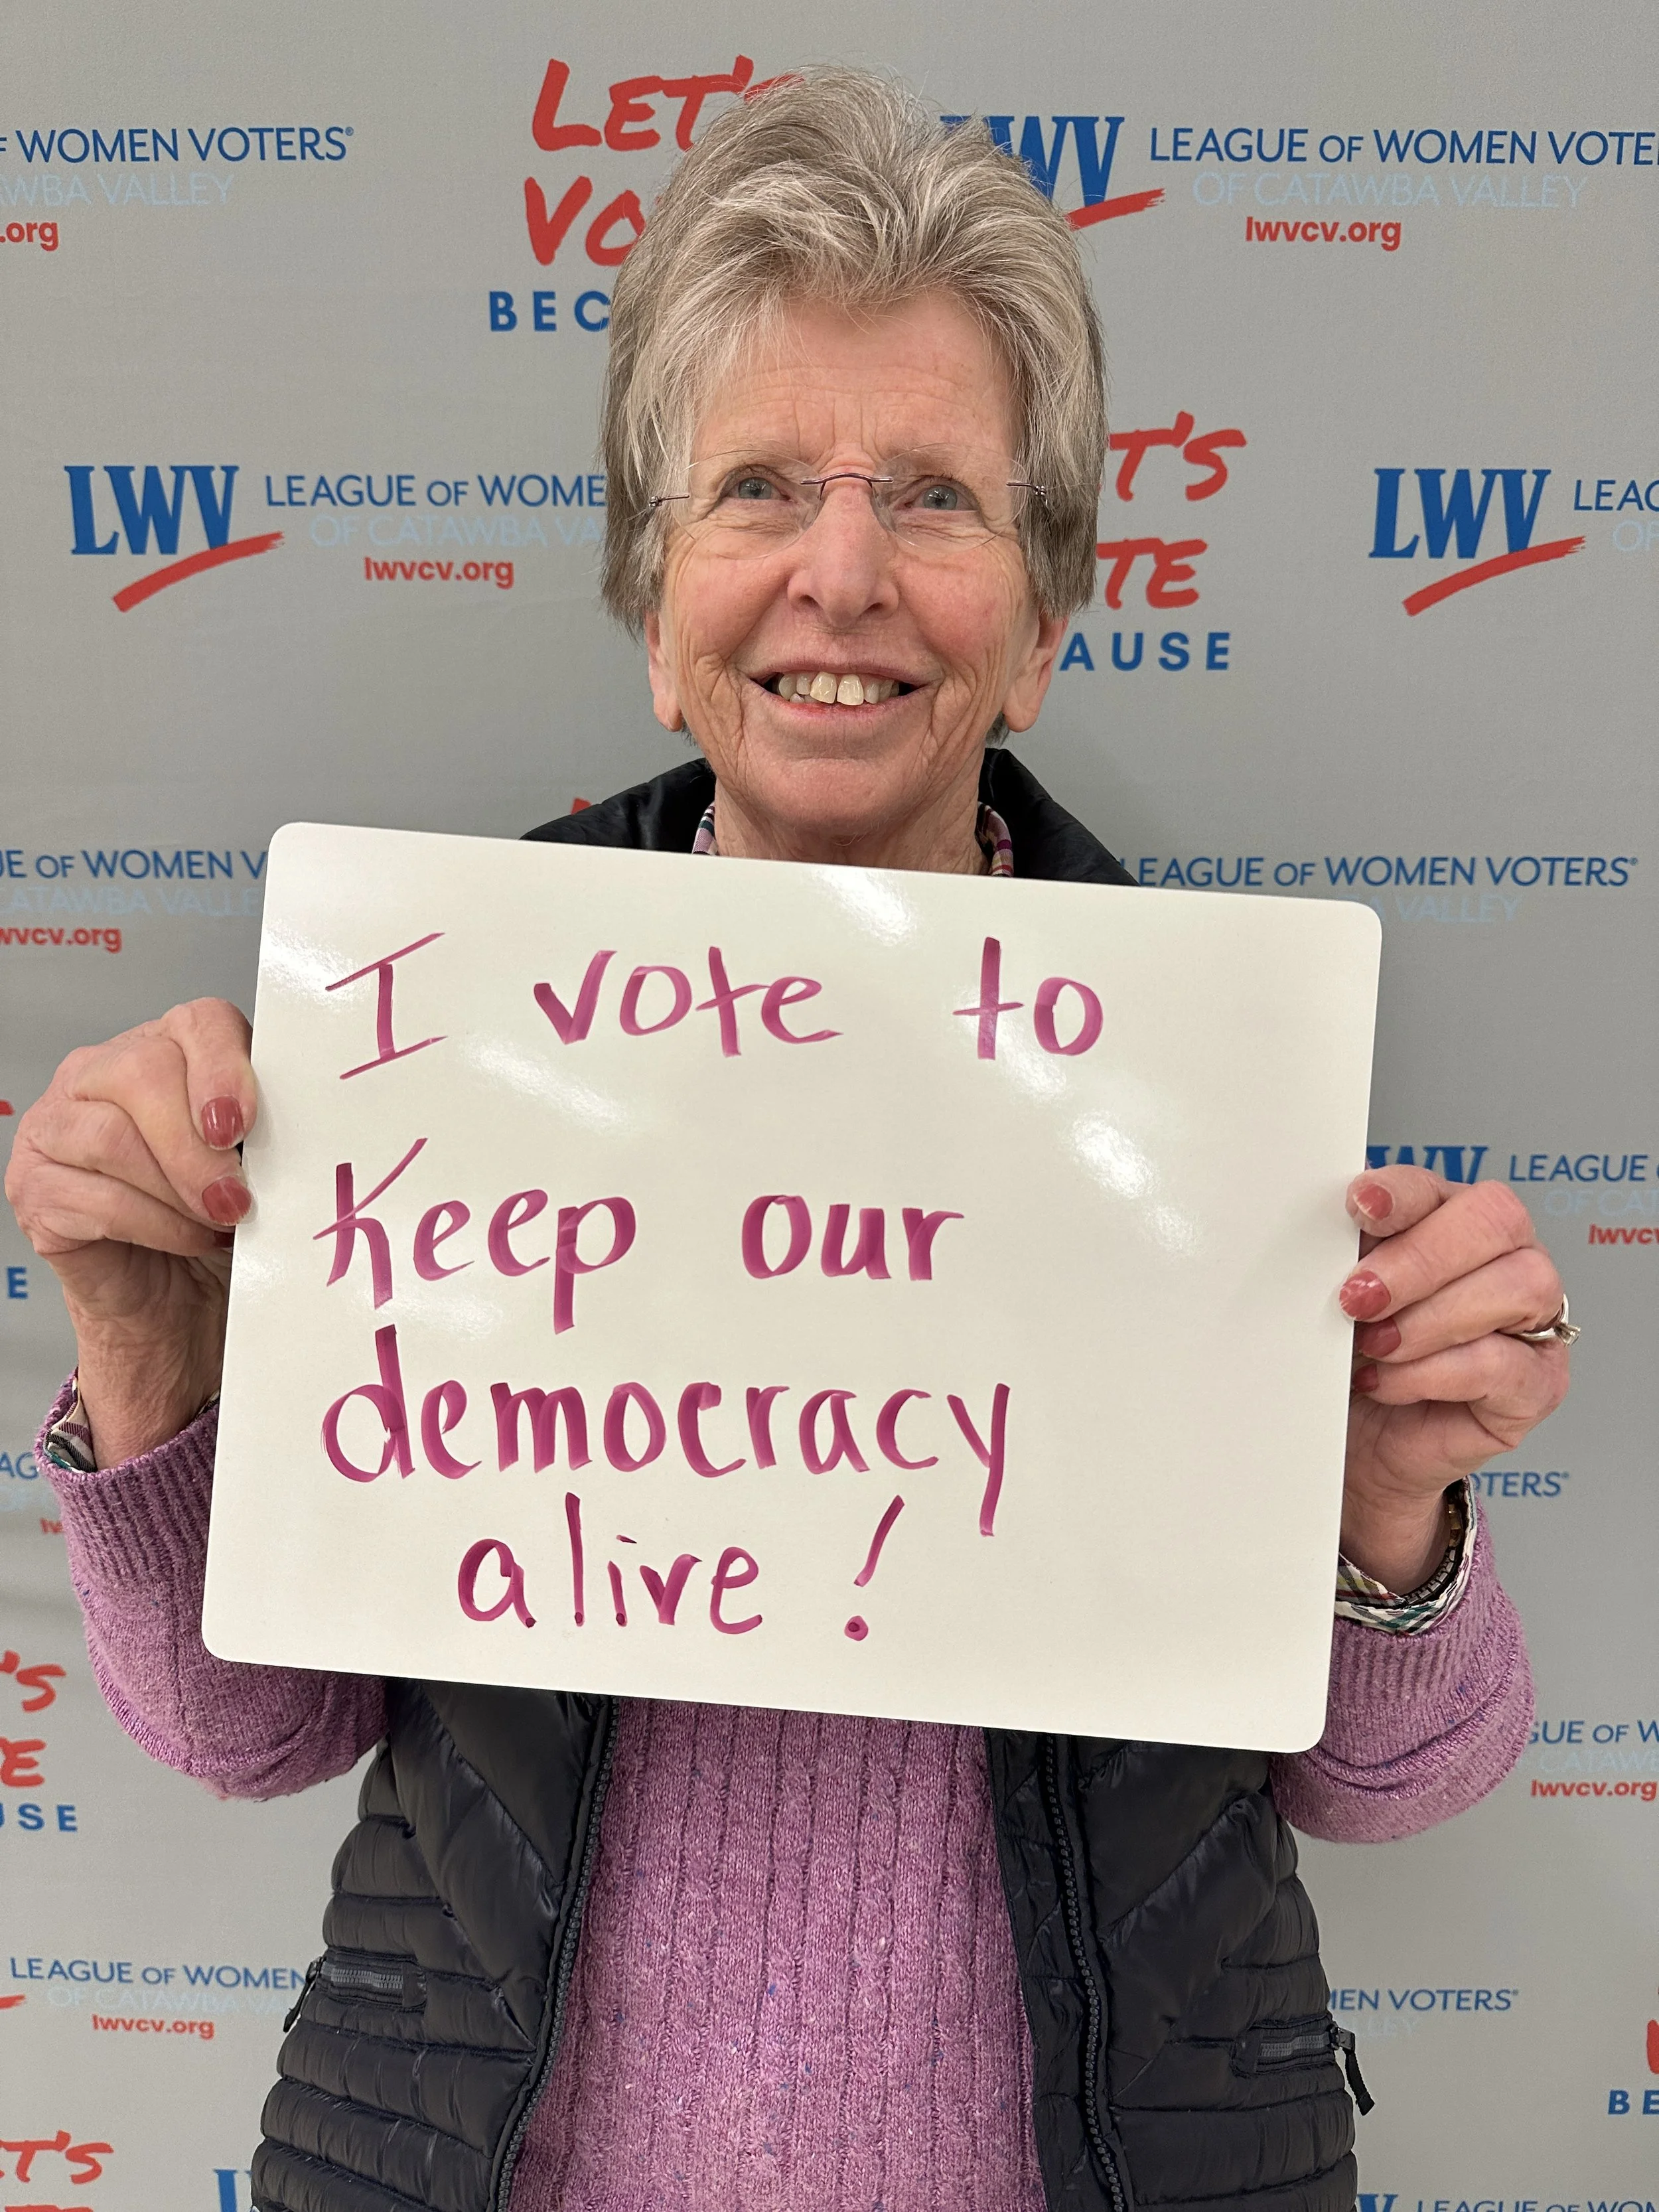 LET'S
F WOMEN VOTERS®
WBA VALLEY
.org
VO
BEC
LWV LEAGUE OF WOMEN VOTE
OF CATAWBA VALLEY
lwvcv.org
T'S
TE
AUSE
LWV LEAGUE OF WOME
OF CATAWBA VA
lwvcv.org
LWV LEAG
OF
UE OF WOMEN V
ATAWBA VALLE
wvcv.org
LEAGUE OF WOMEN VOTERS®
A VALLEY
I vote to
Keep our
democracy
alive!
WV LEAGUE
OF CAT
lwvc
E
AG
OTERS®
'S
E
USE
GUE OF W
CATAWB
lwvcv.org
LEAGUE OF WOMEN
OF CATAWBA VA
lwvcv.org
MEN VOTERS®
LLEY
BE
ET'S
LEAGUE OF WOM